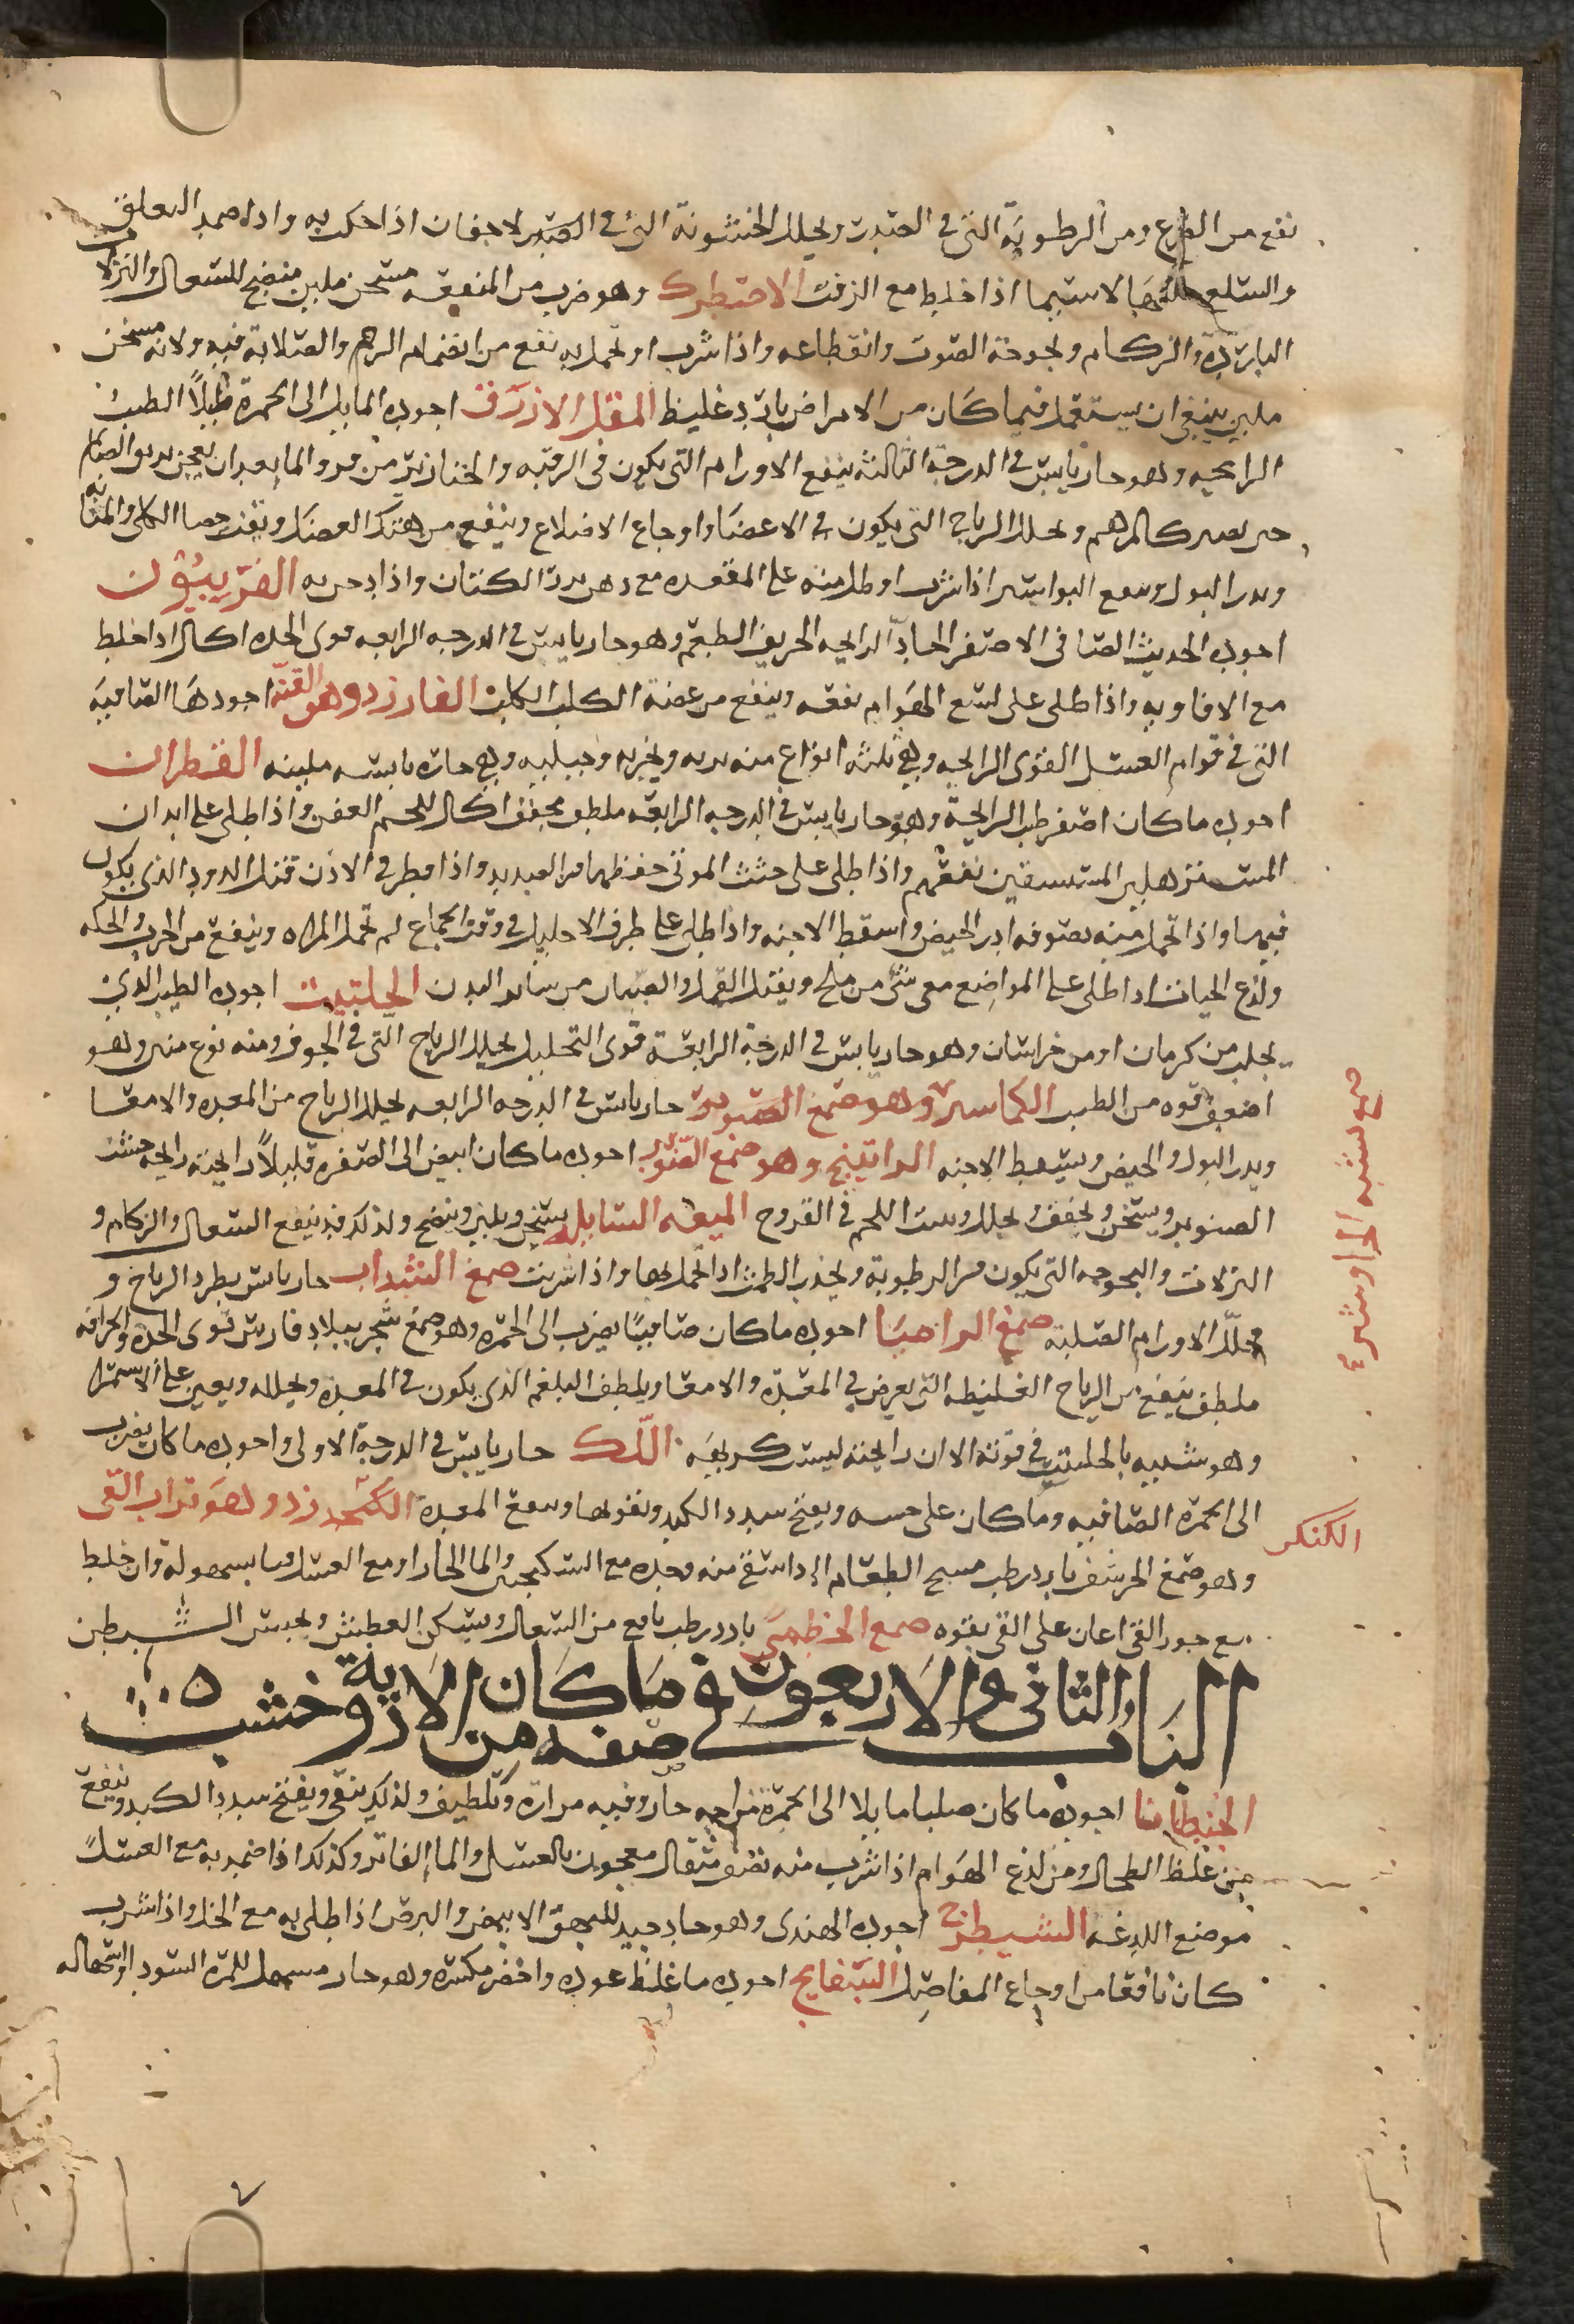 نفع من الصرع ومن الرطوبة التى فى الصدر ويحلل الخشونة التى فى الاجفان اذا حكت به واذا ضمد
والسلع حللها لاسيما اذا خلط مع الزفت الاصطرك وهو ضرب من الميعه مسخن ملين منضج للسعال والنزلات
الباردة والزكام وبحوحة الصوت وانقطاعه واذا شرب او تحمل به نفع من انضمام الرحم والصلابة فيه ولانه مسخن
ملين ينبغى ان يستعمل فيما كان من الامراض بارد غليظ المقل الازرق اجوده المايل الى الحمرة قليلاً الطيب
الرايحه وهو حار يابس فى الدرجة الثالثه ينفع الاورام التى يكون فى الرقبه والخنازير من بعد ان يعجن بريق الصايم
حتى يصير كالمرهم ويحلل الرياح التى يكون فى الاعضا واوجاع الاضلاع وينفع من هتك العضل ويفتت حصا الكلى والمثانه
ويدر البول وينفع البواسير اذا شرب او طلى منه على المقعده مع دهن بزر الكتان واذا بخر به الفربيون
اجوده الحديث الصافى الاصفر الحاد الرايحه الحريف الطعم وهو حار يابس فى الدرجه الرابعه قوى الحده اكال اذا خلط
مع الافاويه واذا طلى على لسع الهوام نفعه وينفع من عضة الكلب الكلب البارزد وهو القنه اجودها الصافيه
التى فى قوام العسل القوى الرايحه وهى ثلثه انواع منه بريه وبحريه وجبليه وهى حاره يابسه ملينه القطران
اجوده ما كان اصفر طيب الرايحة وهو حار يابس فى الدرجه الرابعه ملطف مجفف اكال للحم العفن واذا طلى على ابدان
المسترهلين المستسقين نفعهم واذا طلى على جثث الموتى حفظها من الصديد واذا قطر فى الاذن قتل الدود الذى يكون
فيها واذا تحمل منه بصوفه ادر الحيض واسقط الاجنه واذا طلى على طرف الاحليل فى وقت الجماع لم تحمل المراه وينفع من الجرب والحكه
ولذع الحيات اذا طلى على المواضع مع شى من ملح ويقتل القمل والصيبان من ساير البدن الحلتيت اجوده الطيب الذى
يجلب من كرمان او من خراسان وهو حار يابس فى الدرجة الرابعة قوى التحليل يحلل الرياح التى فى الجوف ومنه نوع منتن وهو
اضعف قوه من الطيب الكاسر وهو صمغ الصنوبر حار يابس فى الدرجه الرابعه يحلل الرياح من المعده والامعا
ويدر البول والحيض ويسقط الاجنه الراتينج وهو صمغ الصنوبر اجوده ما كان ابيض الى الصفره قليلاً رايحته رايحه خشب
الصنوبر ويسخن ويجفف ويحلل وينبت اللحم فى القروح الميعه السايله يسخن ويلين وينضج ولذلك قد ينفع السعال والزكام و
النزلات والبحوحه التى يكون من الرطوبة ويحدر الطمث اذا تحمل بها واذا شربت صمغ السداب حار يابس يطرد الرياح و
يحلل الاورام الصلبة صمغ الراحبا اجوده ما كان صافيًا يضرب الى الحمره وهو صمغ شجر ببلاد فارس قوى الحده والحرافه
ملطف ينفع من الرياح الغليظه التى يعرض فى المعدة والامعا ويلطف البلغم الذى يكون فى المعدة ويحلله ويعين على الاستمرا
وهو شبيه بالحلتيت فى قوته الا ان رايحته ليست كريهه اللك حار يابس فى الدرجة الاولى واجوده ما كان يضرب
الى الحمرة الصافيه وما كان على خشبه ويفتح سدد الكبد ويقويها وينفع المعدة الكنكرزد وهو تراب القى
وهو صمغ الحرشف بارد رطب يهيج الطعام اذا استف منه وحده مع السكنجبين والما الحار او مع العسل قيا بسهولة وان خلط
مع جوز القى اعان على القى بقوه صمغ الخطمى بارد رطب نافع من السعال ويسكن العطش ويحبس البطن
الباب الثانى والاربعون فى صفه ما كان من الادوية خشب
الجنطيانا اجوده ما كان صلبا مايلا الى الحمرة مزاجه حار وفيه مراره وتلطيف ولذلك ينقى ويفتح سدد الكبد وينفع
من غلظ الطحال ومن لذع الهوام اذا شرب منه نصف مثقال معجون بالعسل والما الفاتر وكذلك اذا ضمد به مع العسل
موضع اللدغه الشيطرج اجوده الهندى وهو حار جيد للبهق الابيض والبرص اذا طلى به مع الخل واذا شرب
كان نافعا من اوجاع المفاصل البسفايج اجوده ما غلظ عوده واخضر مكسره وهو حار مسهل للمرة السودا واسحاله
صمغ يشبه الجاوشير
الكنكر
٧